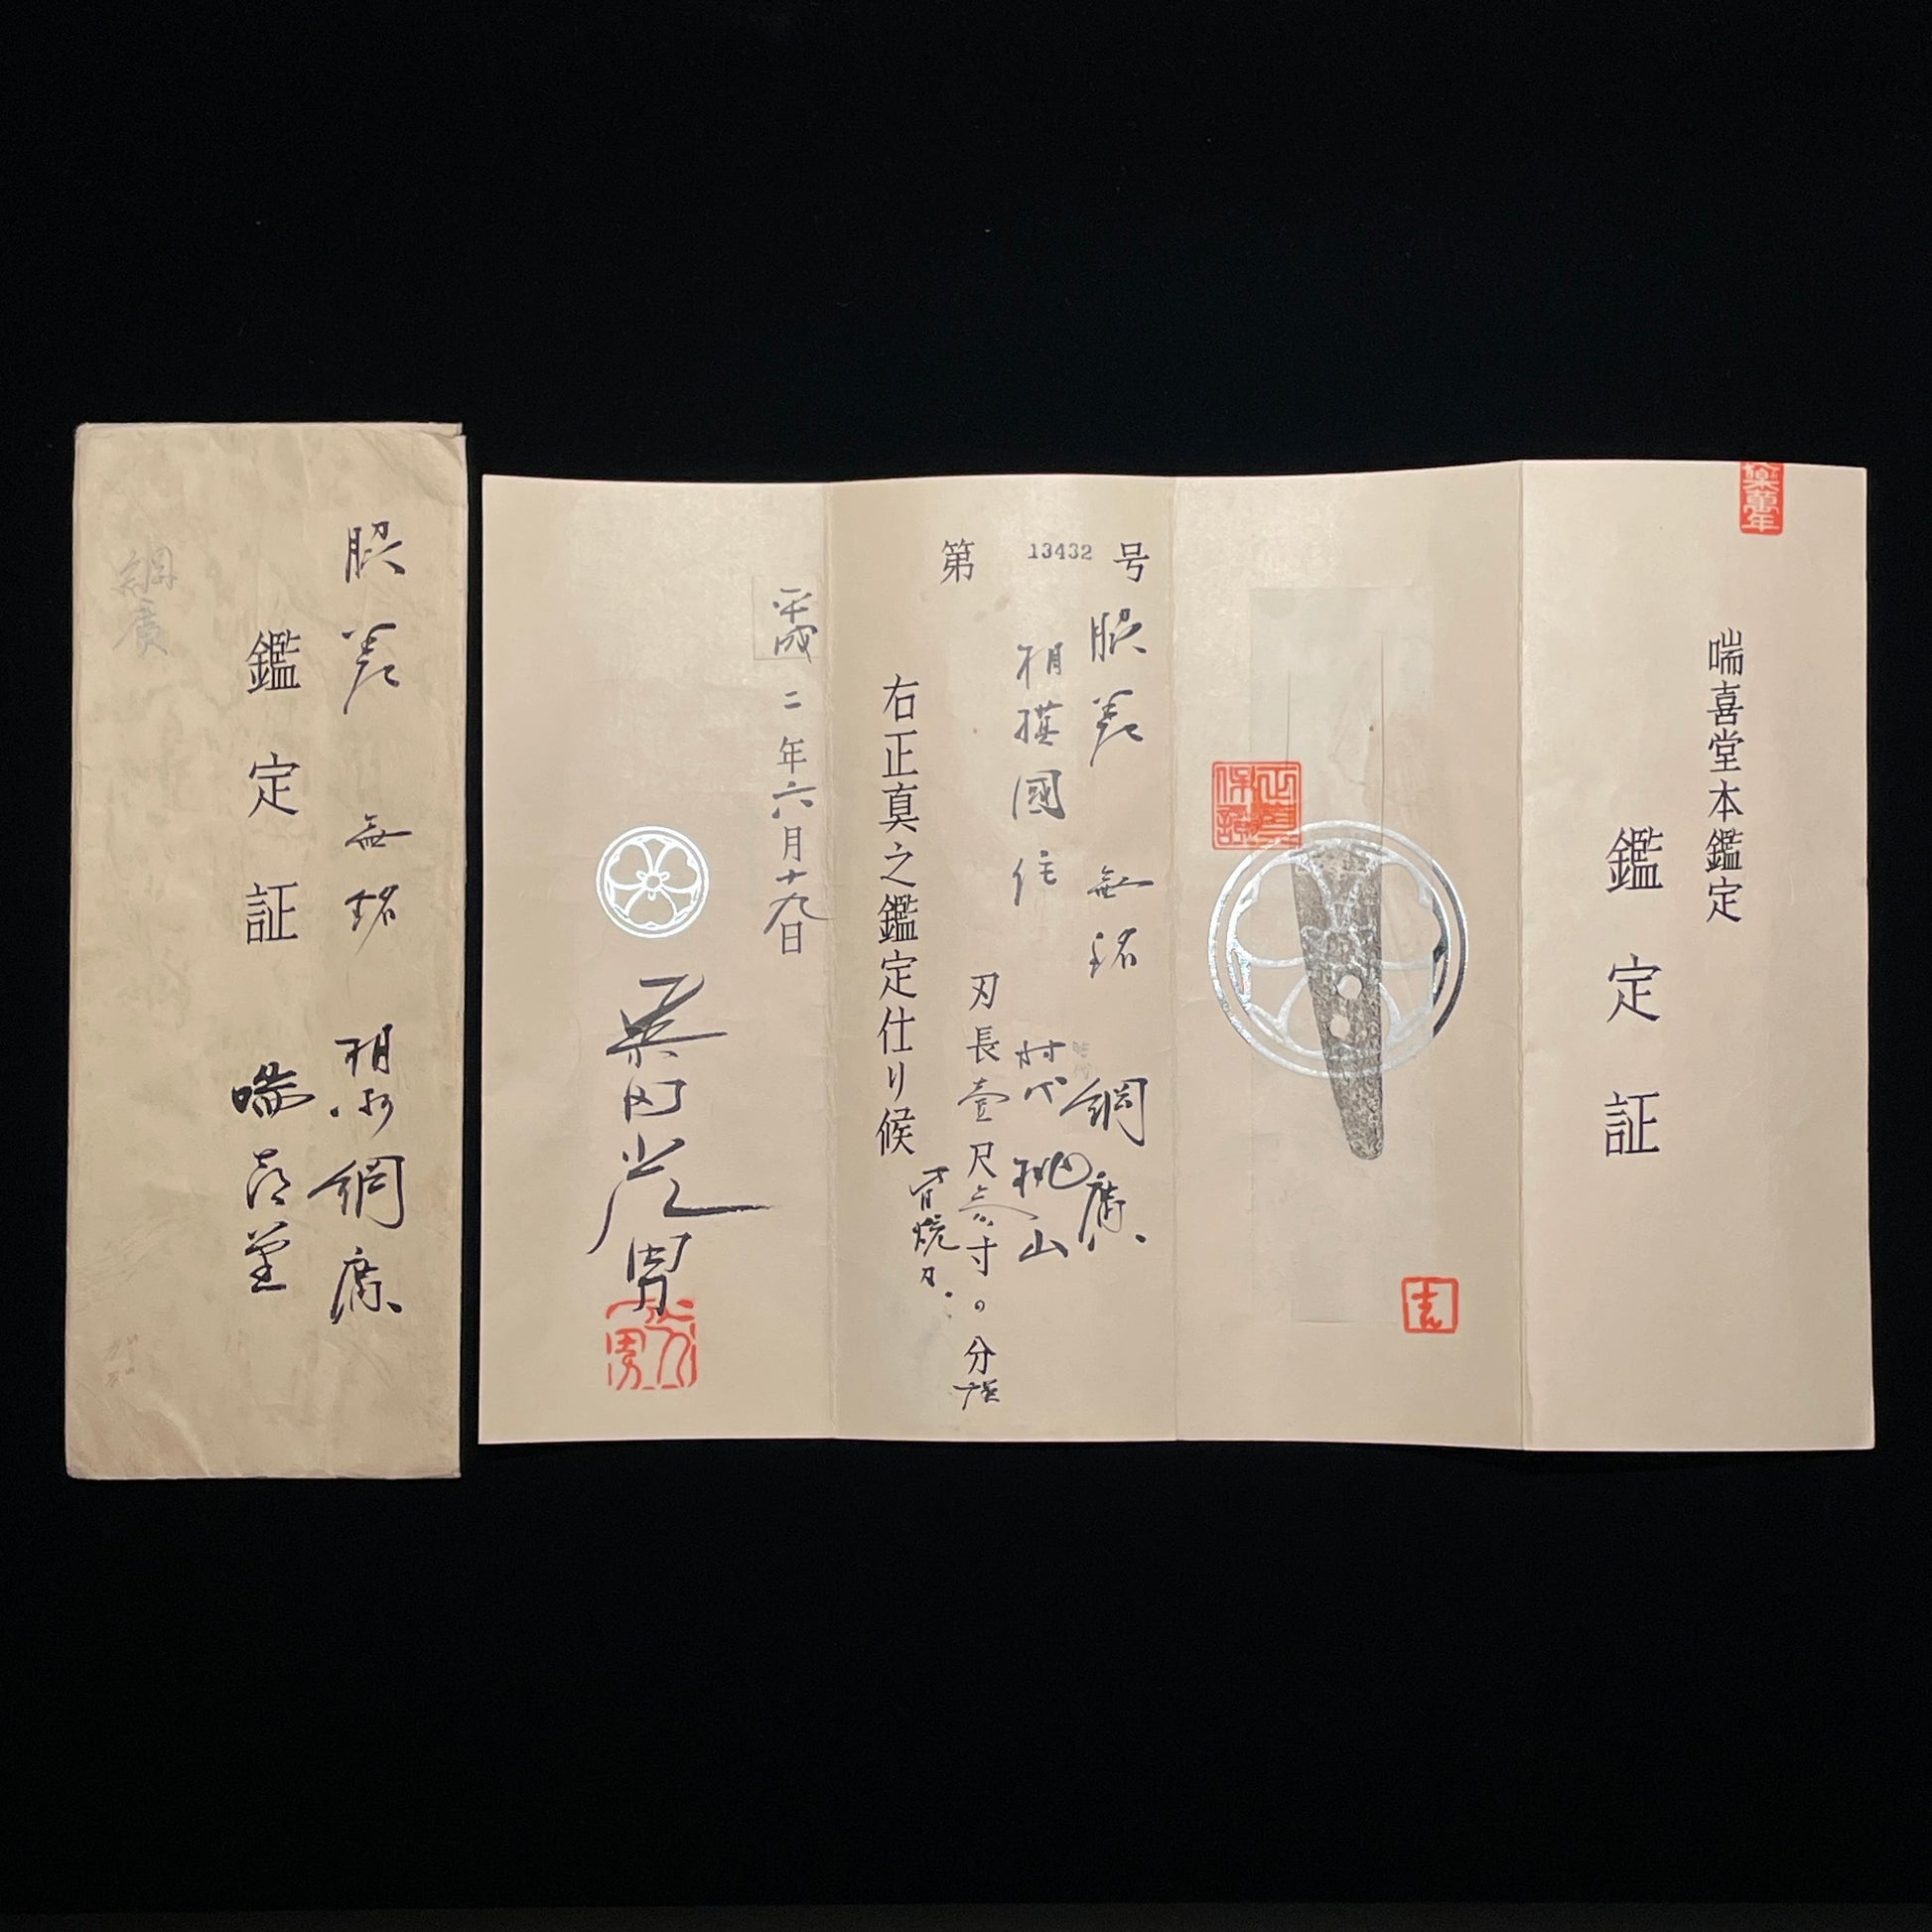 脇差 無銘 相州綱廣
鑑定証 喘喜堂
綱廣
樂萬年
喘喜堂本鑑定
鑑定証
正真
保証
第 13432 号
脇差 無銘 綱廣
相模國住 時代 桃山
刃長壹尺参寸0分強
右正真之鑑定仕り候
皆焼刃
平成二年六月十九日
光男